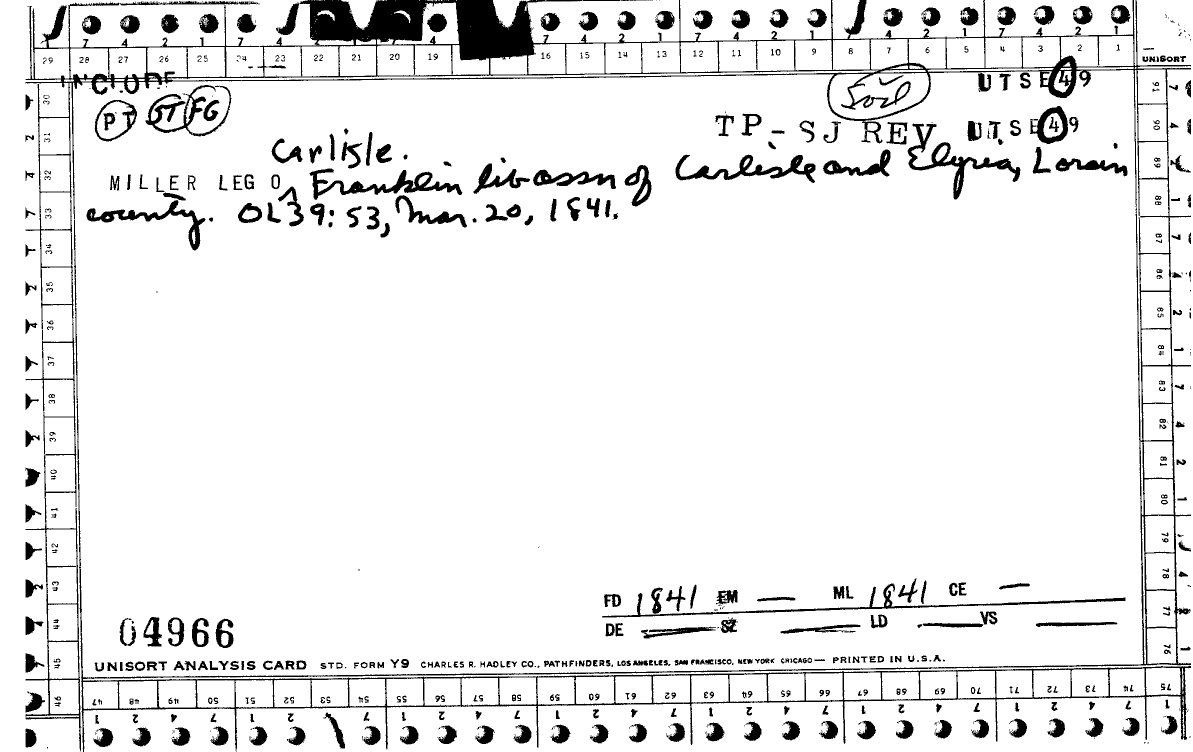 7 4 2 1 7 4 2 4 7 4 2 1 7 4 2 1 7 4 2 1 7 4 2 1
29 28 27 26 25 24 23 22 21 20 19 18 17 16 15 14 13 12 11 10 9 8 7 6 5 4 3 2 1 UNISORT
INCLUDE
PT ST FG
Soil
UTSE 49
TP-SJ REV UTSE 49
Carlisle.
MILLER LEG O ^ Franklin lib assn of Carlisle and Elyria, Lorain
county. OL39:53, Mar. 20, 1841.
30 31 32 33 34 35 36 37 38 39 40 41 42 43 44 45 46
91 90 89 88 87 86 85 84 83 82 81 80 79 78 77 76
FD 1841 EM — ML 1841 CE —
DE — SZ — LD — VS —
04966
UNISORT ANALYSIS CARD STD. FORM Y9 CHARLES R. HADLEY CO., PATHFINDERS, LOS ANGELES, SAN FRANCISCO, NEW YORK CHICAGO — PRINTED IN U.S.A.
47 48 49 50 51 52 53 54 55 56 57 58 59 60 61 62 63 64 65 66 67 68 69 70 71 72 73 74 75